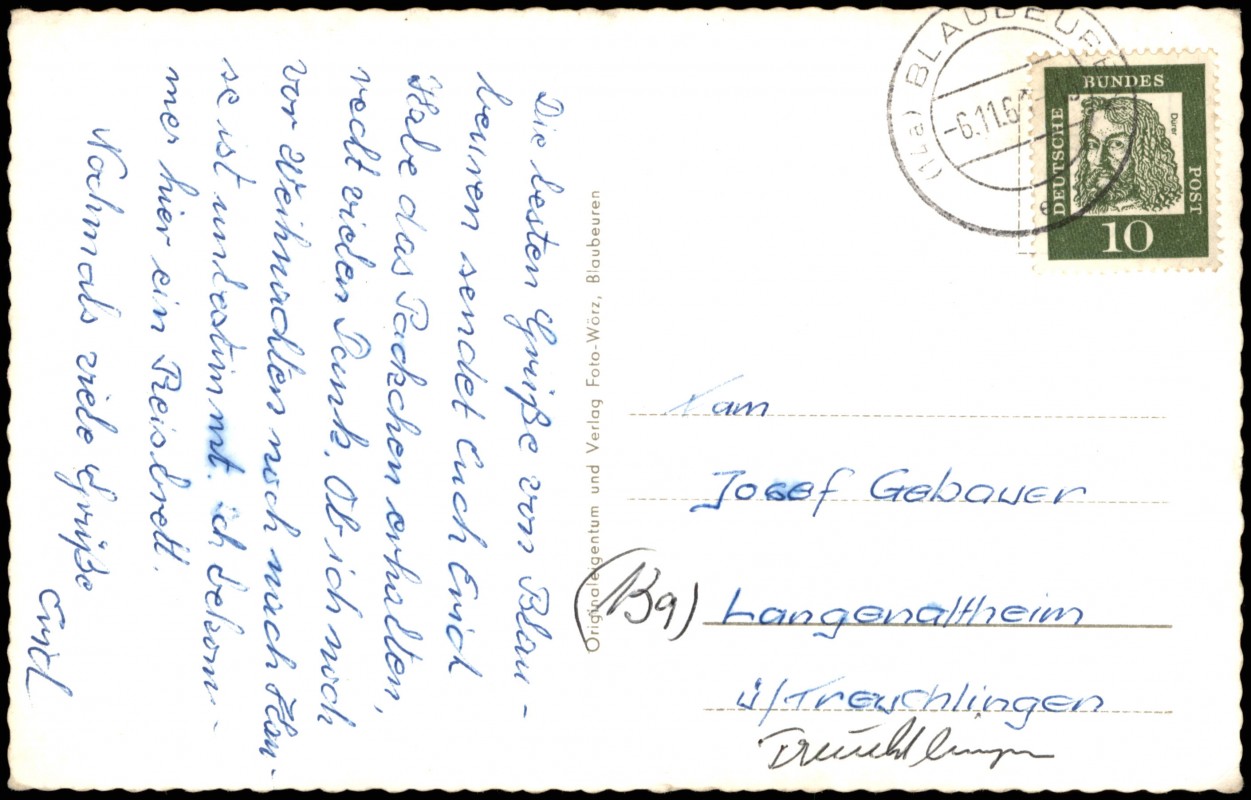 Die besten Grüße von Blau-
beuren sendet Euch Erich
Habe das Päckchen erhalten,
recht vielen Dank. Ob ich noch
vor Weihnachten noch nach Hau-
se ist unbestimmt. ich bekom-
mer hier ein Reisbrett.
Nochmals viele Grüße
Erich
Originaleigentum und Verlag Foto-Wörz, Blaubeuren
(14a) BLAUBEUREN
-6.11.61
e
DEUTSCHE BUNDES POST
Dürer
10
Fam
Josef Gebauer
(Bg) Langenaltheim
ü/Treuchlingen
Treuchtlingen